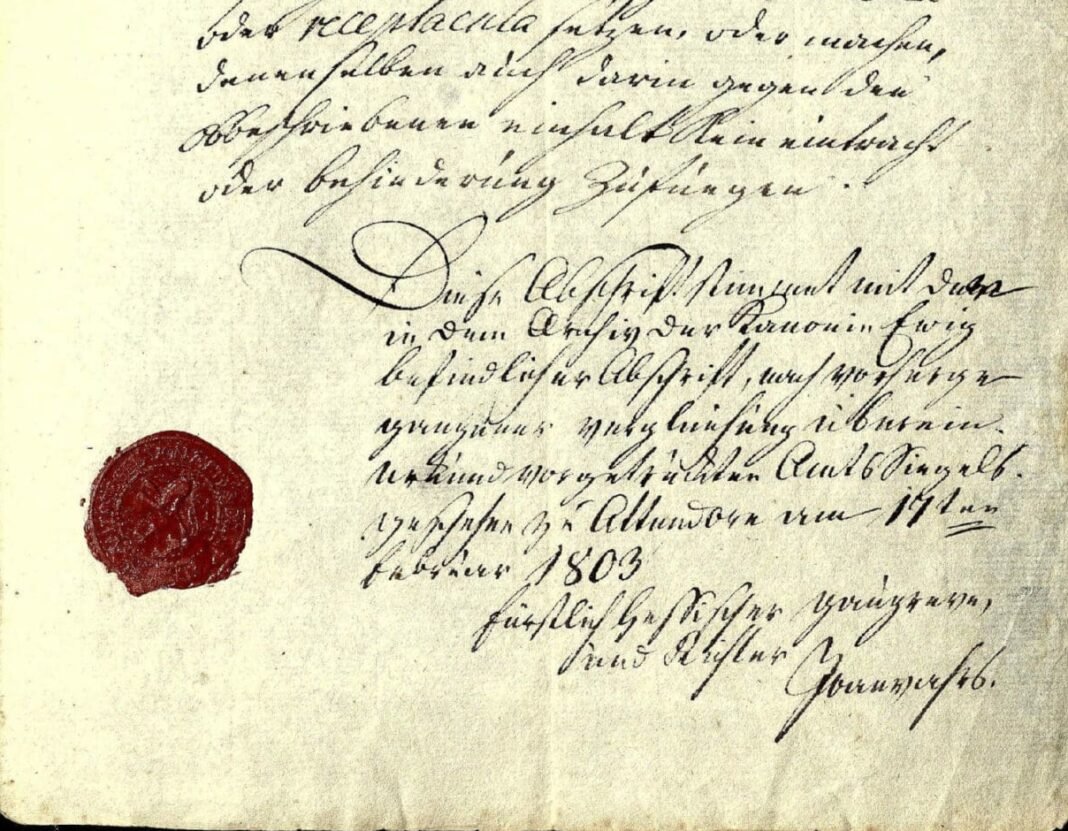 oder receptacula setzen, oder machen,
denenselben auch darin gegen den
obbeschriebenen einhalt kein eintracht
oder behinderung zufuegen.
Diese Abschrift stimmet mit der
in dem Archiv der Kanonie Ewig
befindlicher Abschrift, nach vorherge
gangener vergleichung überein.
urkund vorgetruckten Amts Siegels.
geschehen zu Attendorn am 17ten
februar 1803
fürstlich hessischer gaugreve,
und Richter